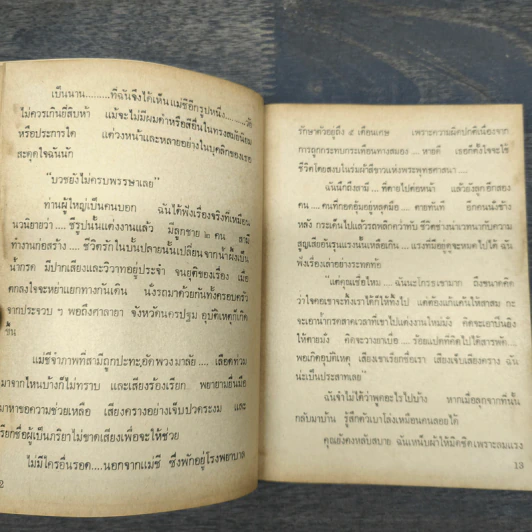 เป็นนาน........ที่ฉันจึงได้เห็นแม่ชีอีกรูปหนึ่ง....... วัย
ไม่ควรเกินยี่สิบห้า แม้จะไม่มีผมดำหรือสีอื่นในทรงสมัยนิยม
หรือประการใด แต่วงหน้าและหลายอย่างในบุคลิกของเธอ
สะดุดใจฉันนัก
"บวชยังไม่ครบพรรษาเลย"
ท่านผู้ใหญ่เป็นคนบอก ฉันได้ฟังเรื่องจริงที่เหมือน
นวนิยายว่า .... ชีรูปนั้นแต่งงานแล้ว มีลูกชาย ๒ คน สามี
ทำงานก่อสร้าง .... ชีวิตรักในบั้นปลายนั้นเปลี่ยนจากน้ำผึ้งเป็น
น้ำกรด มีปากเสียงและวิวาทอยู่ประจำ จนยุติของเรื่อง เมื่อ
ตกลงใจจะหย่าแยกทางกันเดิน นั่งรถมาด้วยกันทั้งครอบครัว
จากประจวบ ฯ พอถึงศาลายา จังหวัดนครปฐม อุบัติเหตุก็เกิด
ขึ้น
แม่ชีจำภาพที่สามีถูกปะทะอัดพวงมาลัย .... เลือดท่วม
มาจากไหนบ้างก็ไม่ทราบ และเสียงร้องเรียก... พยายามยื่นมือ
มาหาขอความช่วยเหลือ เสียงครางอย่างเจ็บปวดระงม และ
เรียกชื่อผู้เป็นภริยาไม่ขาดเสียงเพื่อจะให้ช่วย
ไม่มีใครอื่นรอด....นอกจากแม่ชี ซึ่งพักอยู่โรงพยาบาล
2
รักษาตัวอยู่ถึง ๕ เดือนเศษ เพราะความผิดปกติเนื่องจาก
การถูกกระทบกระเทือนทางสมอง .... หายดี เธอก็ตั้งใจจะใช้
ชีวิตโดยสงบในร่มผ้าสีขาวแห่งพระพุทธศาสนา ....
ฉันนึกถึงสามี .... ที่ตายไปต่อหน้า แล้วยังลูกอีกสอง
คน .... คนที่กอดอุ้มอยู่หลุดมือ .... ตายทันที อีกคนนั่งอยู่ข้าง
หลัง กระเด็นไปแล้วรถพลิกคว่ำทับ ชีวิตช่างน่าเวทนากับความ
สูญเสียอันรุนแรงนั้นเหลือเกิน .... แรงที่มีอยู่ดูจะหมดไปได้ ฉัน
ฟังเรื่องเล่าอย่างระทดท้อ
"แต่คุณเชื่อไหม .... ฉันนะโกรธเขามาก ถึงขนาดคิด
ว่าใจคอเขาจะทิ้งเราได้ก็ให้ทิ้งไป แต่ต้องแก้แค้นให้สาสม กะ
จะเอาน้ำกรดสาดเวลาที่เขาไปแต่งงานใหม่มั่ง คิดจะเอาปืนยิง
ให้ตายมั่ง คิดจะวางยาเบื่อ .... ร้อยแปดที่คิดไปได้สารพัด....
พอเกิดอุบัติเหตุ เสียงเขาเรียกชื่อเรา เสียงเจ็บเสียงคราง ฉัน
น่ะเป็นประสาทเลย"
ฉันจำไม่ได้ว่าพูดอะไรไปบ้าง หากเมื่อลุกจากที่นั้น
กลับมาบ้าน รู้สึกตัวเบาโล่งเหมือนคนลอยได้
คุณอังคหลับสบาย ฉันเหน็บผ้าให้มิดชิดเพราะลมแรง
13